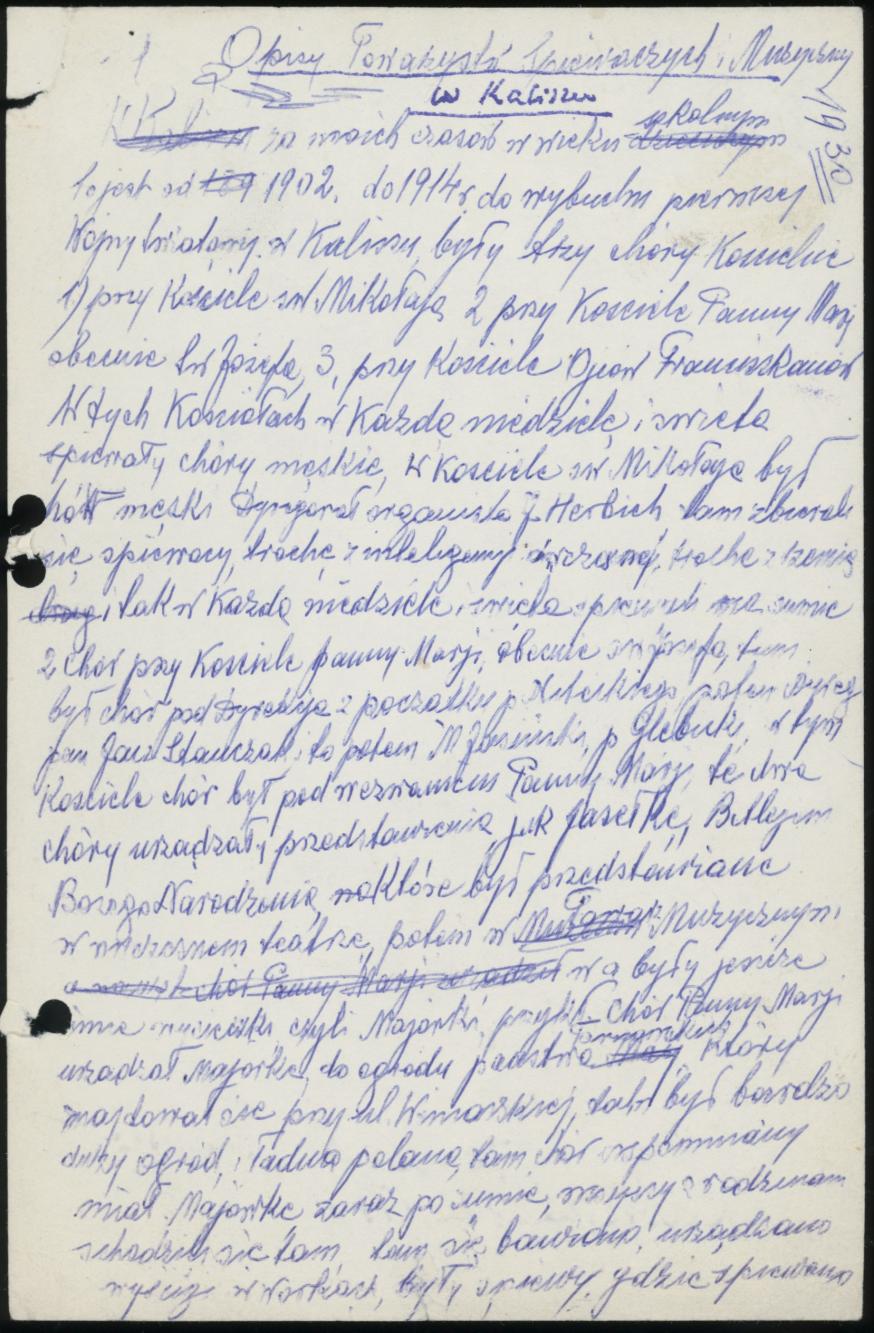 1
Opisy Towarzystw Śpiewaczych i Muzyczny
w Kaliszu
1930
za moich czasów w wieku szkolnym
to jest od 1902. do 1914 r. do wybuchu pierwszej
Wojny Światowej. w Kaliszu, były trzy chóry Koscielne
1) przy Kościele św Mikołaja 2 przy Kosciele Panny Marji
obecnie św Józefa, 3, przy Kosciele Ojców Franciszkanów
W tych Kosciołach w Każdą niedzielę i swięta
spiewały chóry męskie, w Kosciele św Mikołaja był
chór męski Dyrygował organista J. Herbich tam zbierali
się spiewacy, trochę z inteligencji trochę z
i tak w Każdą niedzielę i swięta na sumie
2 Chór przy Kosciele panny Marji, obecnie św Józefa, tam
był chór pod Dyrekcją z początku p potem
pan Jan Stanczak i to potem M Jasinski, p w tym
Kosciele chór był pod wezwaniem Panny Marji, te dwa
chóry urządzały przedstawienia, jak Jasełka, Betlejem
Bożego Narodzenia, które był przedstawiane
w teatrze, potem w Towarz Muzycznym
a chór Panny Marji urządził w a były jeszcze
inne wycieczki czyli Majówki, Chór Panny Marji
urządzał Majówkę, do ogrodu państwa który
znajdował się przy ul. Winiarskiej, tam był bardzo
duży ogród, i ładna polana, tam chór wspomniany
miał Majówkę zaraz po sumie, wszyscy z rodzinam
schodzili się tam, tam się bawiono, urządzano
wyścigi w workach, były śpiewy, gdzie spiewano